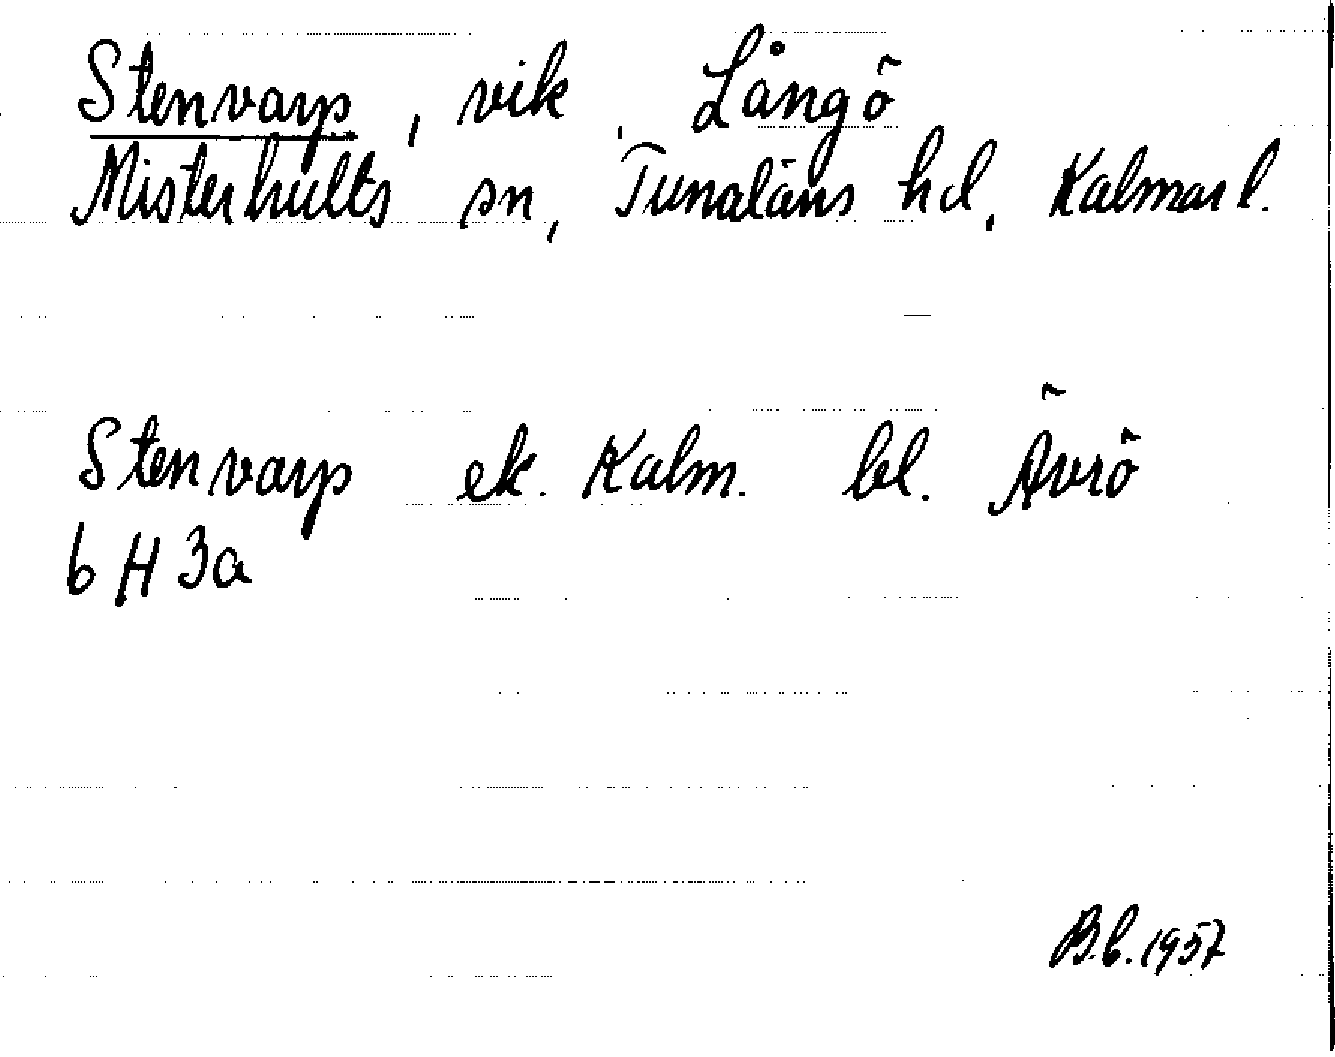 Stenvarp, vik, Långö
Misterhults sn, Tunaläns hd, Kalmar l.
Stenvarp ek. Kalm. bl. Ävrö
6 H 3a
B.b. 1957